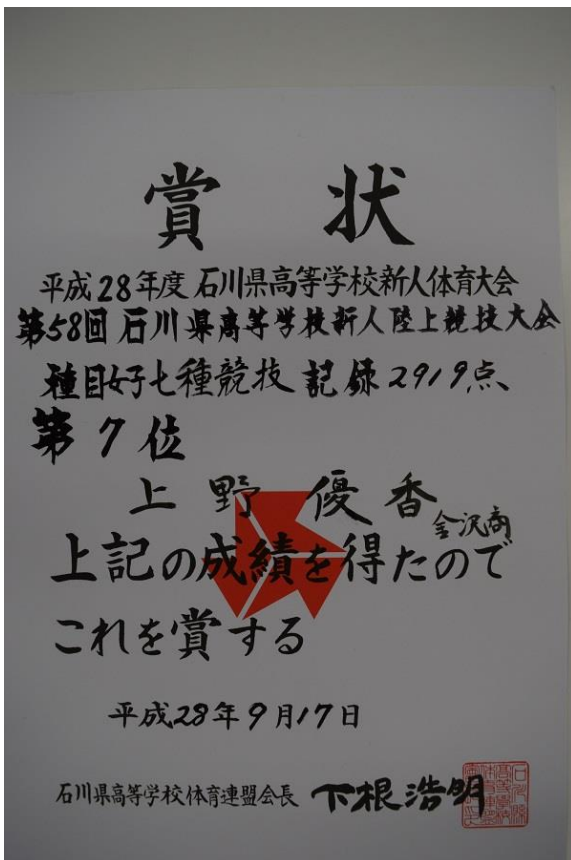 賞状
平成28年度 石川県高等学校新人体育大会
第58回 石川県高等学校新人陸上競技大会
種目 女子七種競技 記録 2919点
第7位
上野 優香
金沢商
上記の成績を得たので
これを賞する
平成28年9月17日
石川県高等学校体育連盟会長 下根浩明